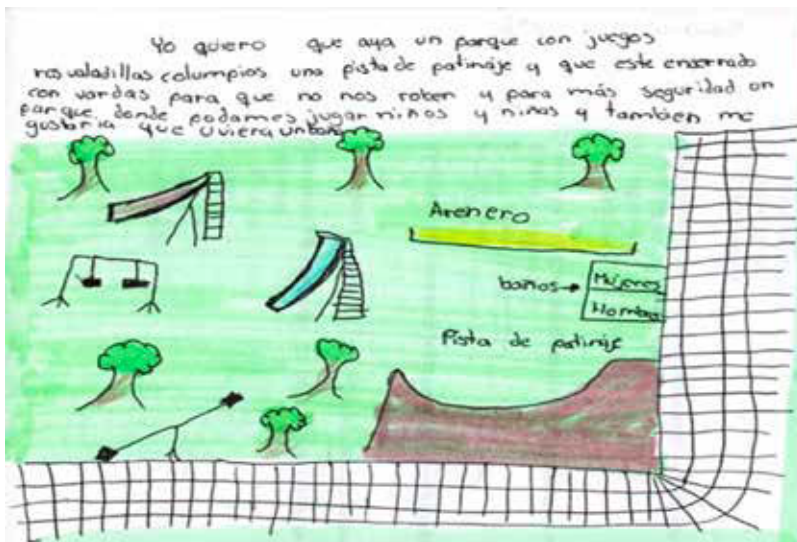 Yo quiero que aya un parque con juegos
resvaladillas columpios una pista de patinaje y que este encerrado
con vardas para que no nos roben y para más seguridad un
parque donde podamos jugar niños y niñas y tambien me
gustaria que uviera un baño
Arenero
baños
Mujeres
Hombres
Pista de patinaje